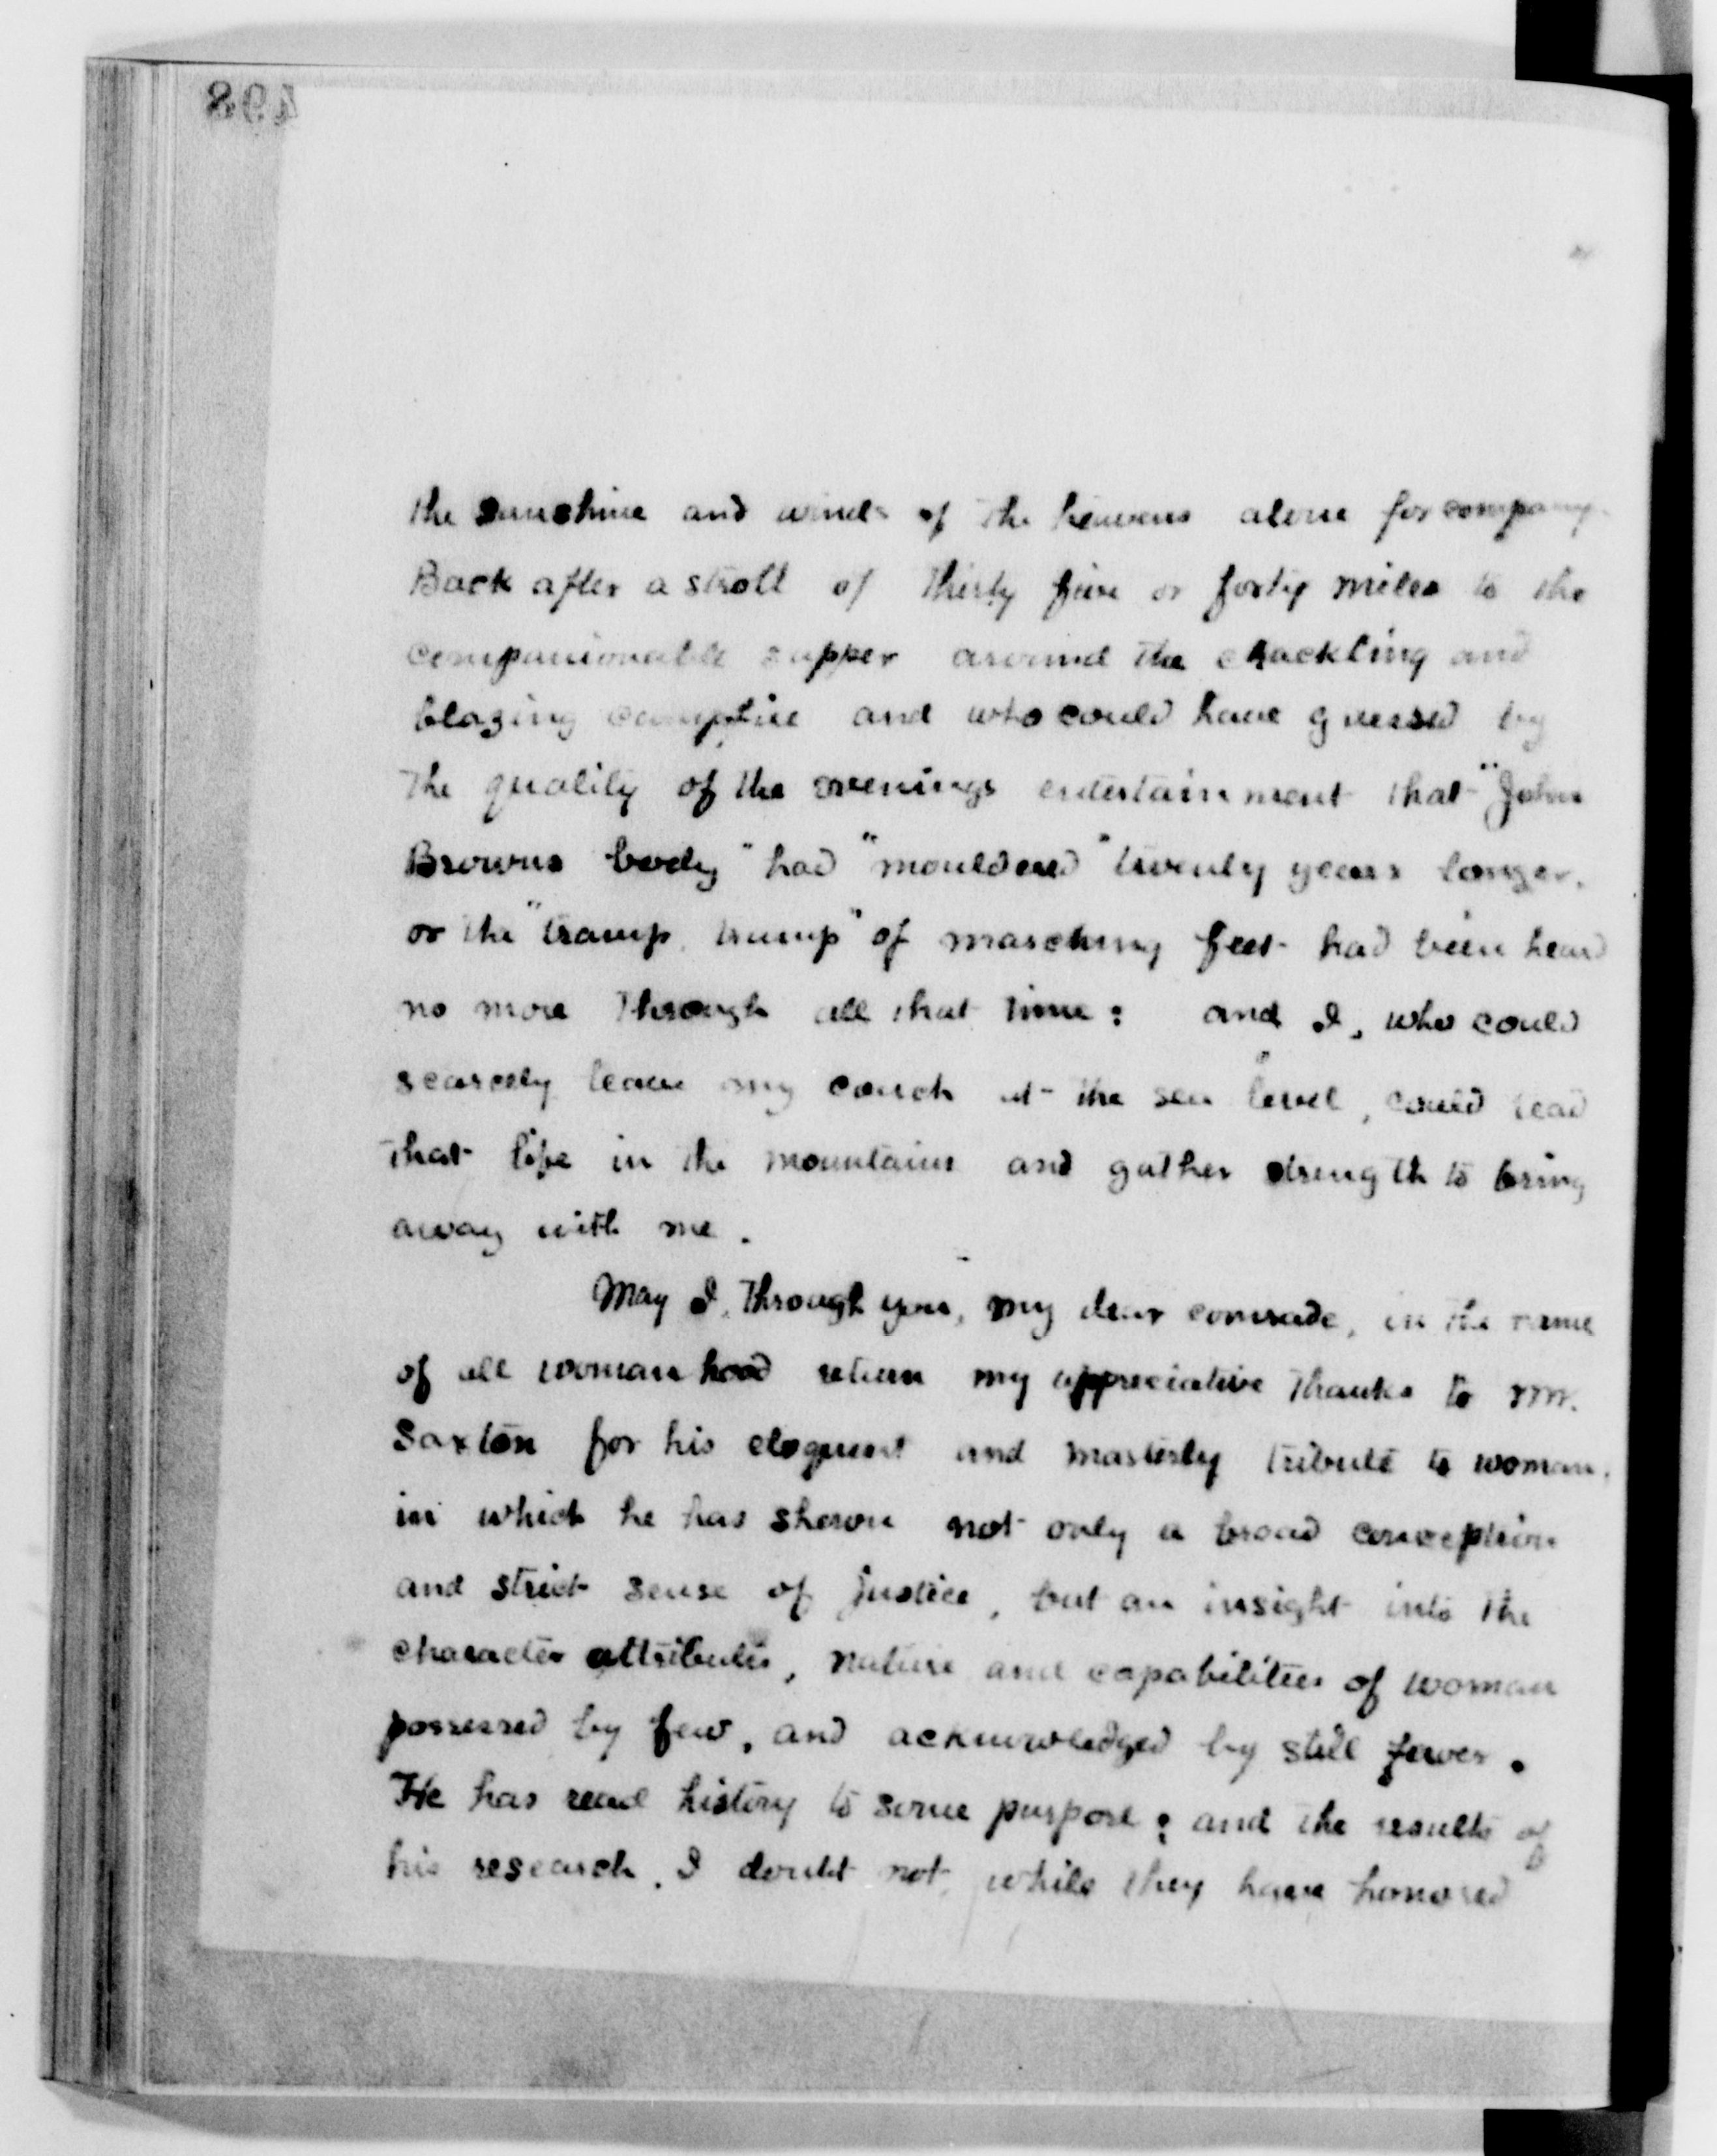 498
the sunshine and winds of the heavens alone for company.
Back after a stroll of thirty five or forty miles to the
companionable supper around the crackling and
blazing campfire and who could have guessed by
the quality of the evenings entertainment that "John
Browns body" had "mouldered" twenty years longer.
or the "tramp, tramp" of marching feet had been heard
no more through all that time: and I, who could
scarcely leave my couch at the sea level, could lead
that life in the mountains and gather strength to bring
away with me.
May I, through you, my dear comrade, in the name
of all womanhood return my appreciative thanks to Mr.
Saxton for his eloquent and masterly tribute to woman.
in which he has shown not only a broad conception
and strict sense of justice, but an insight into the
character attributes, nature and capabilities of woman
possessed by few, and acknowledged by still fewer.
He has read history to some purpose; and the results of
his research, I doubt not, while they have honored